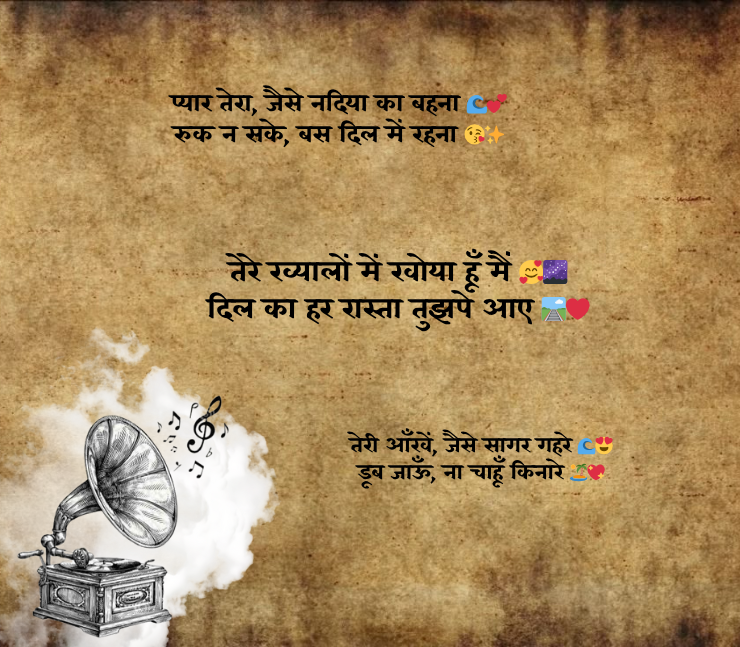 प्यार तेरा, जैसे नदिया का बहना 🌊💕
रुक न सके, बस दिल में रहना 😘✨
तेरे ख्यालों में खोया हूँ मैं 🥰🌌
दिल का हर रास्ता तुझपे आए 🛤️❤️
तेरी आँखें, जैसे सागर गहरे 🌊😍
डूब जाऊँ, ना चाहूँ किनारे 🏝️💖